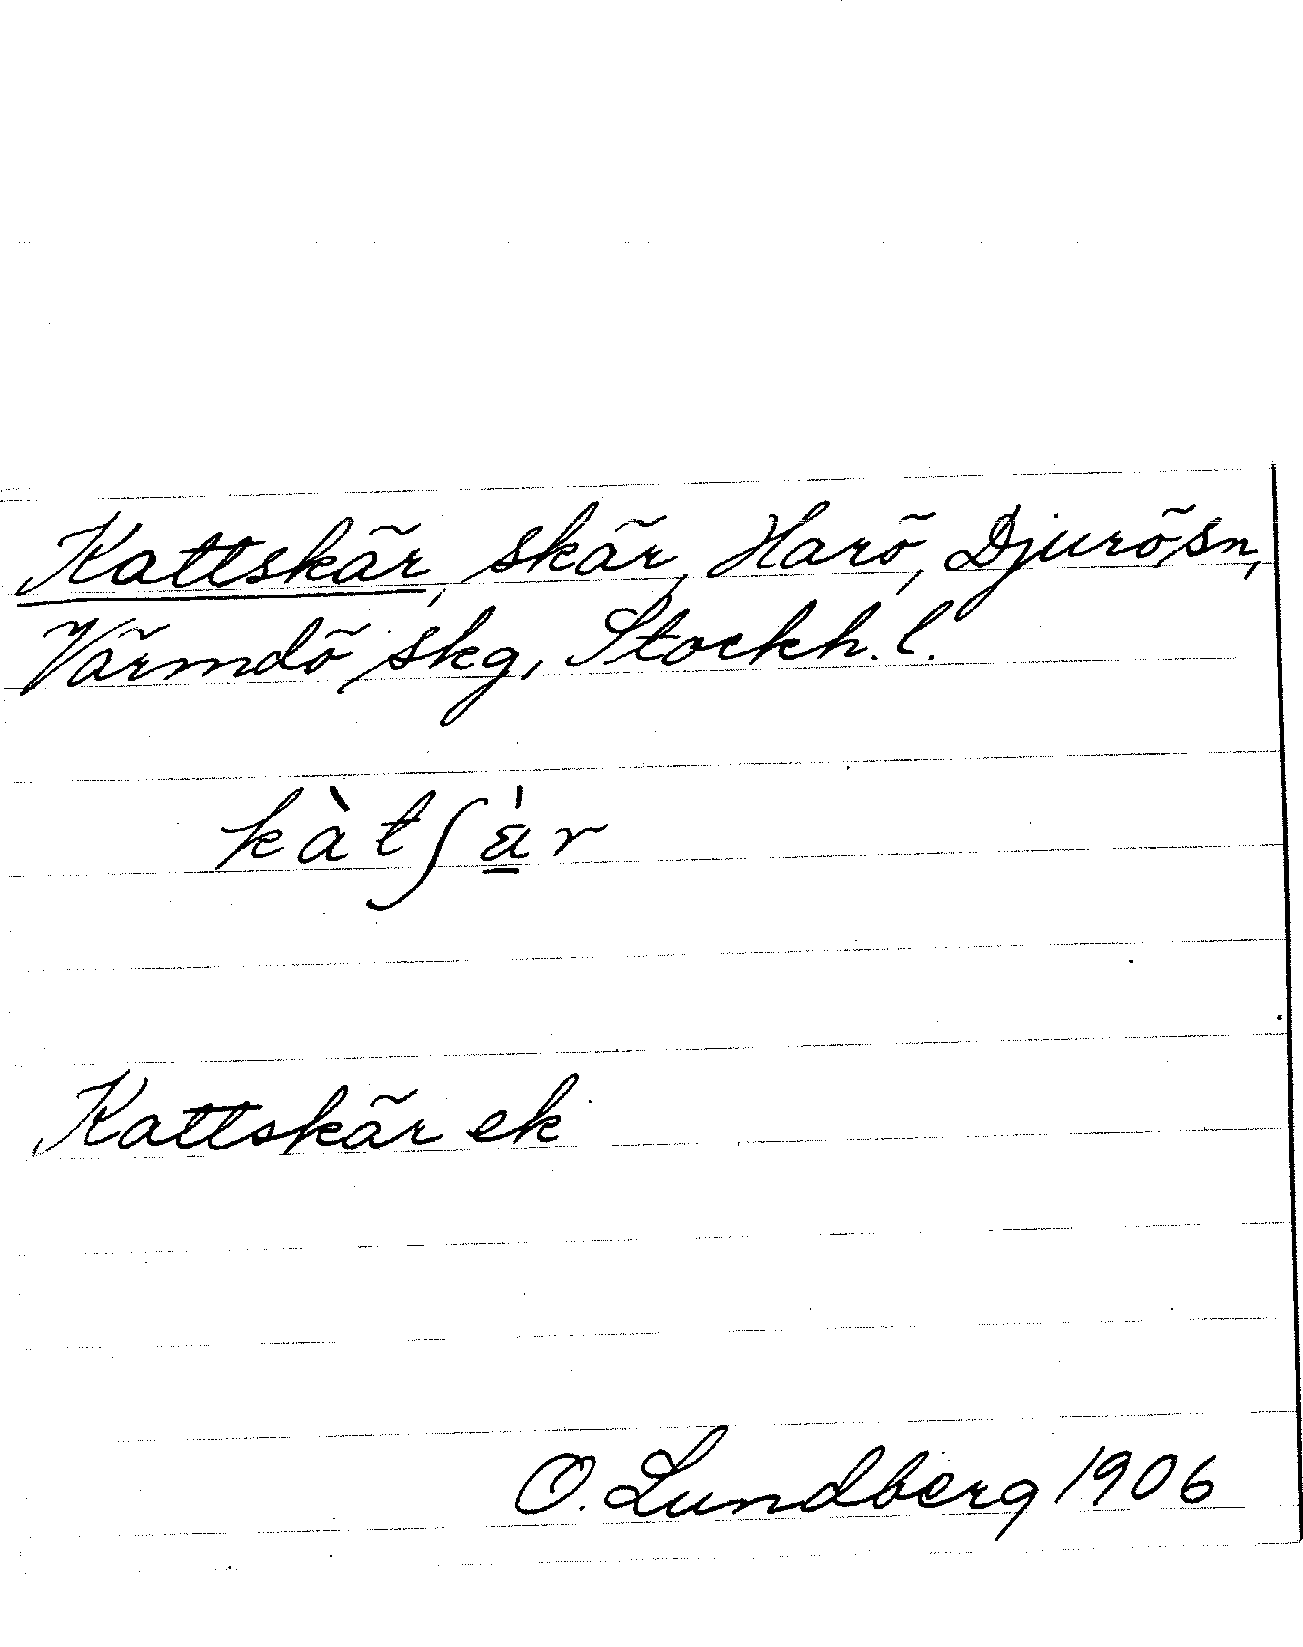 Kattskär, skär, Harö, Djurö sn,
Värmdö skg, Stockh. l.
kàtʃä̀r
Kattskär ek
O. Lundberg 1906